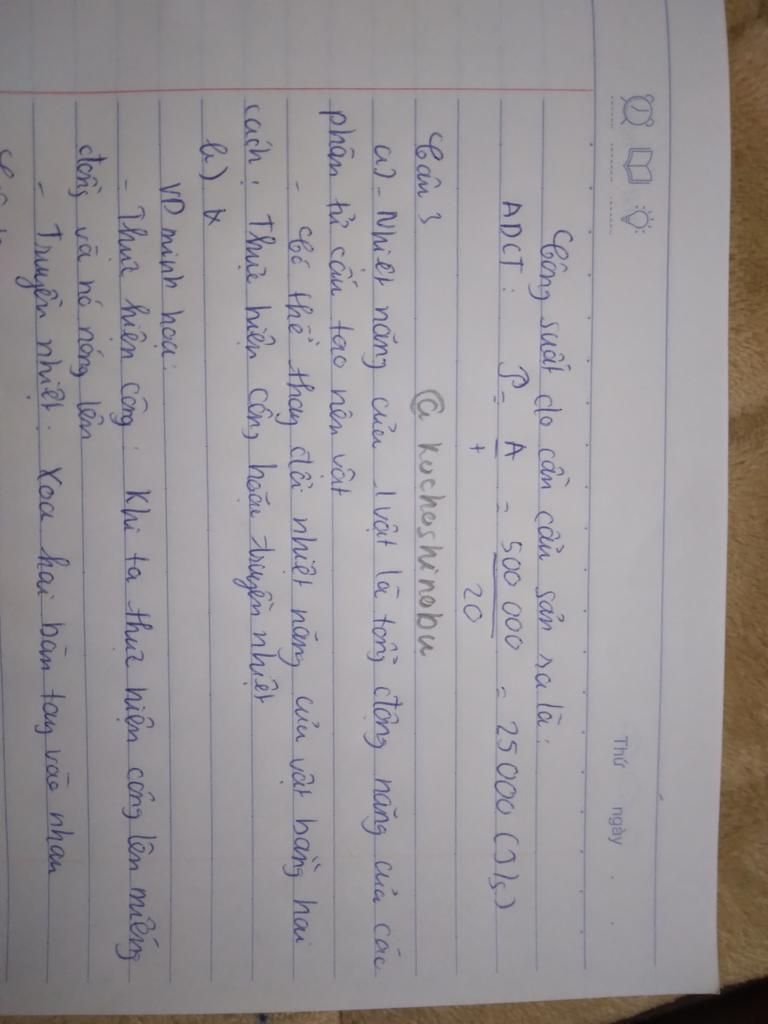 Thứ ngày
Công suất do cần cẩu sản ra là:
ADCT: P = A/t = 500 000/20 = 25 000 (J/s)
Câu 3 @kochoshinobu
a) - Nhiệt năng của 1 vật là tổng động năng của các
phân tử cấu tạo nên vật
- Có thể thay đổi nhiệt năng của vật bằng hai
cách: Thực hiện công hoặc truyền nhiệt
b)
VD minh hoạ:
- Thực hiện công: Khi ta thực hiện công lên miếng
đồng và nó nóng lên
- Truyền nhiệt: Xoa hai bàn tay vào nhau